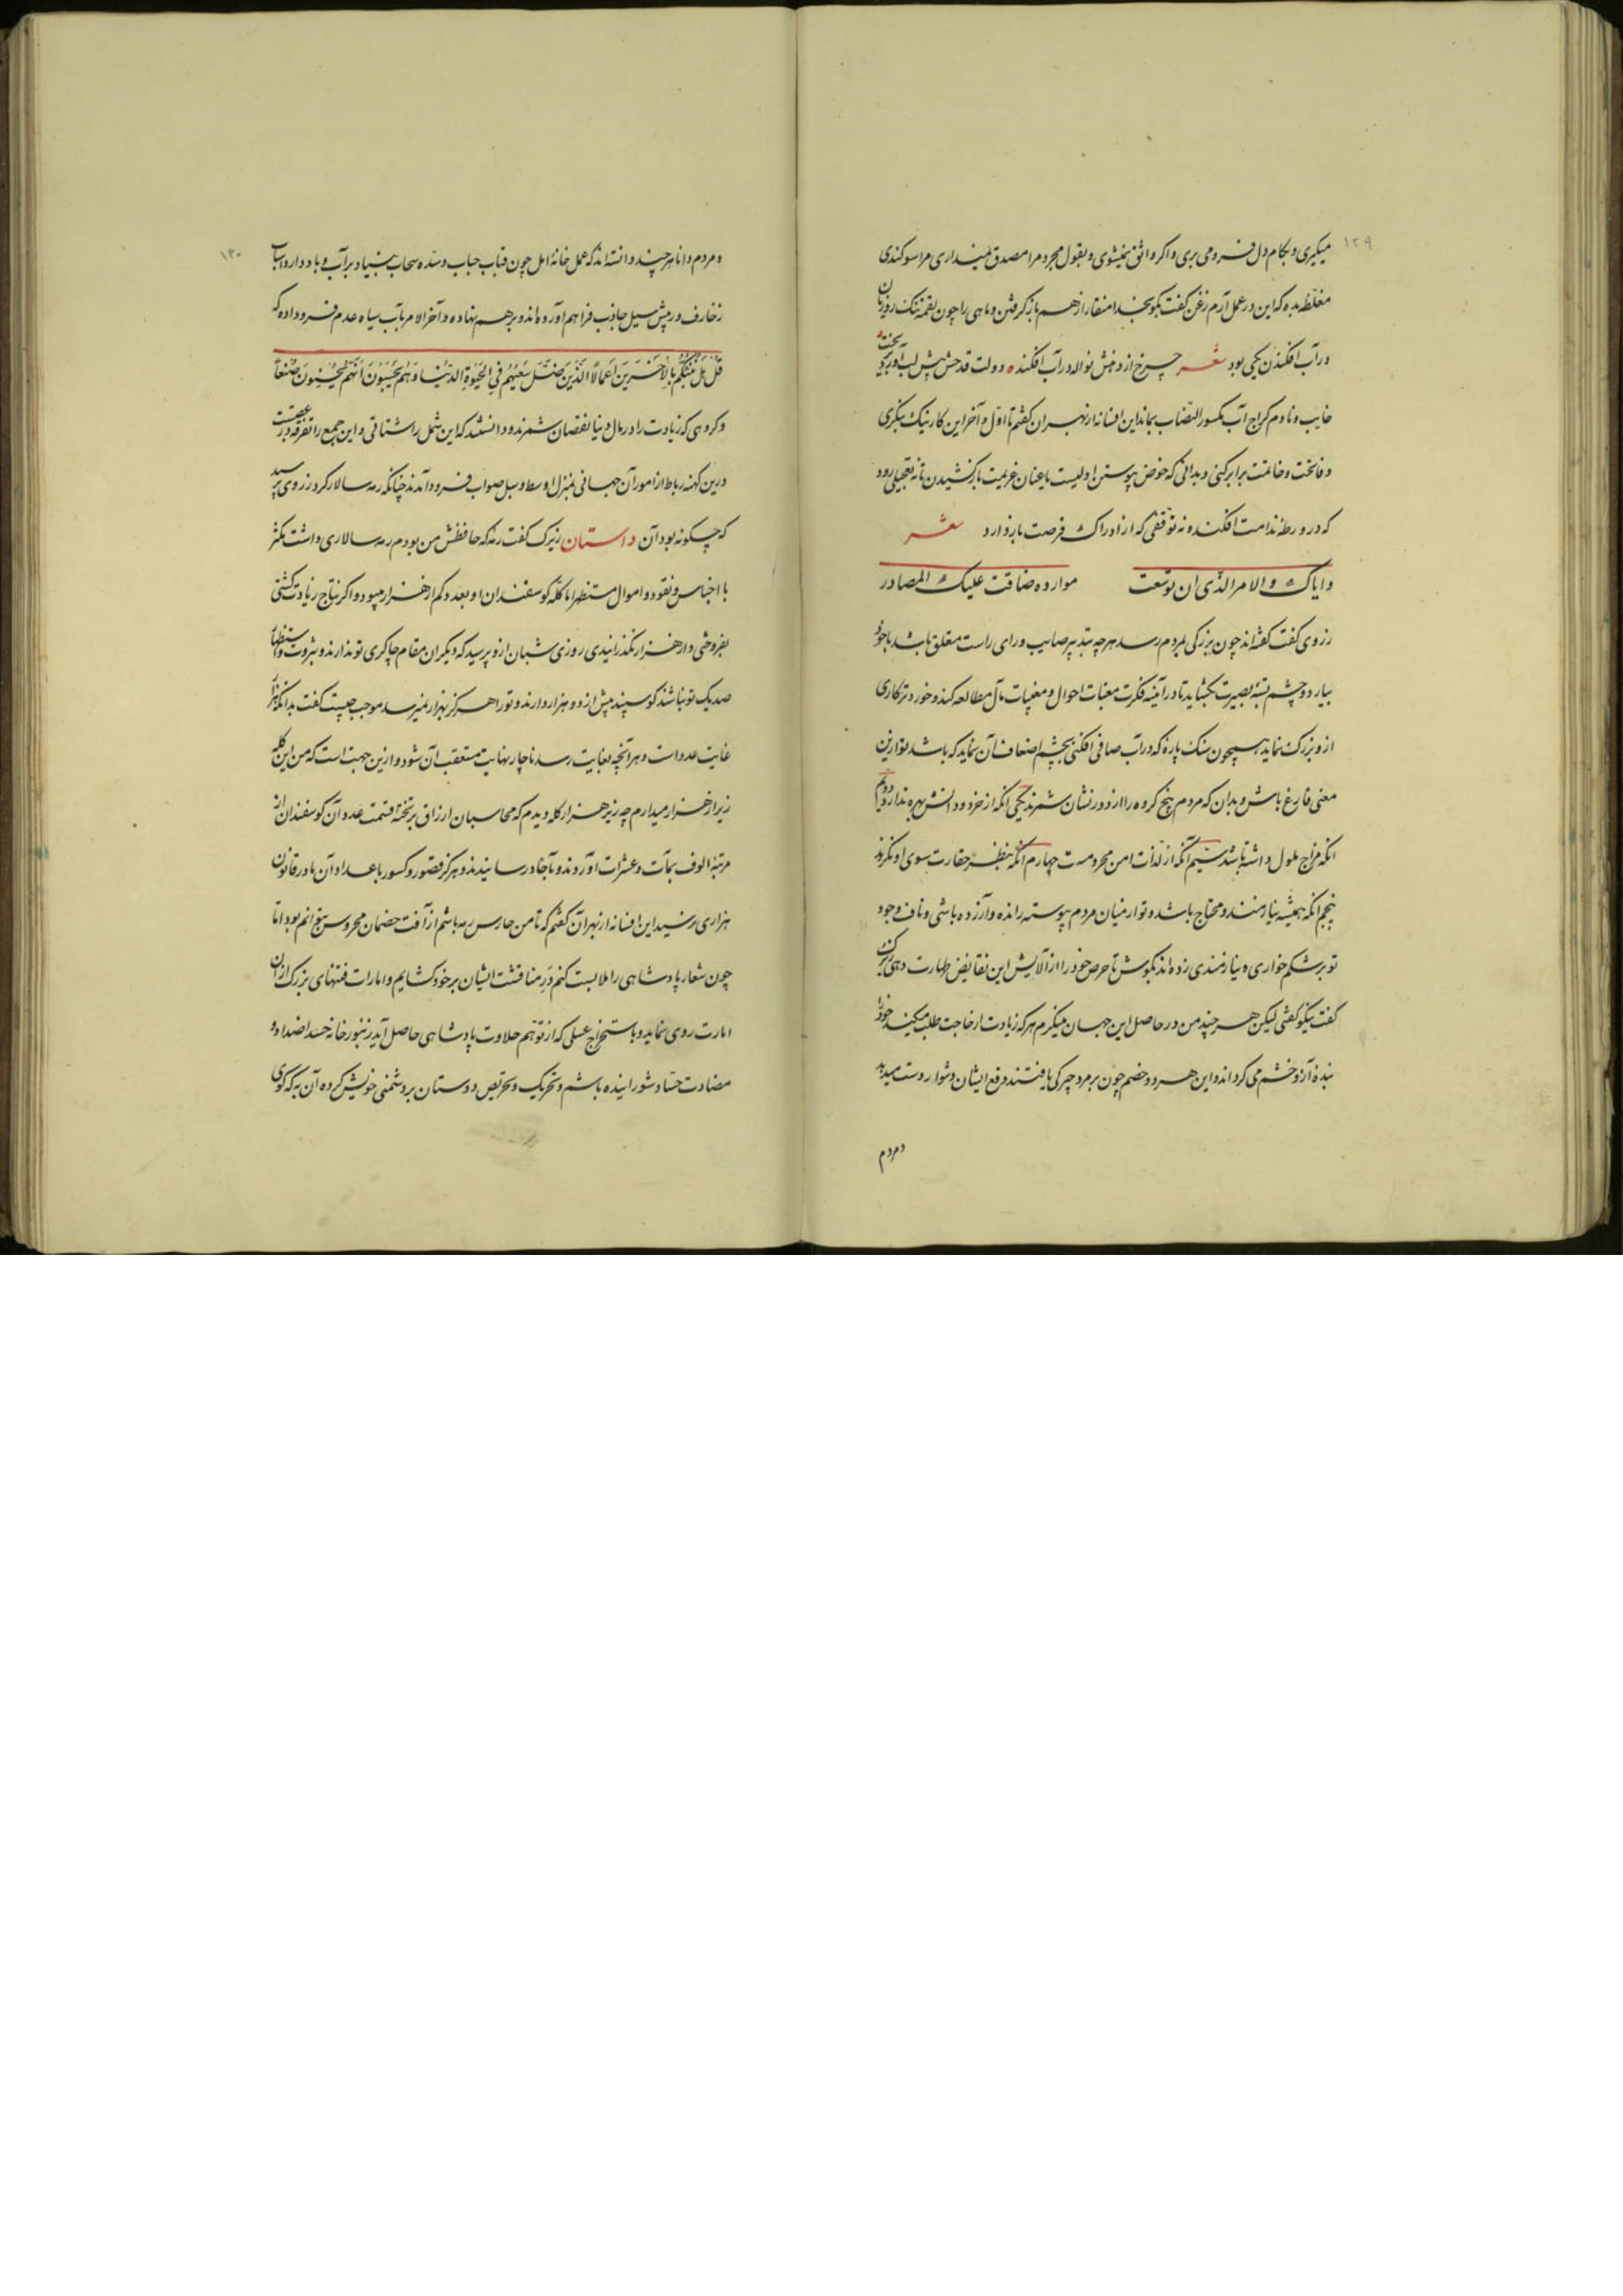 ۱۲۹
میکیری و بکام دل فرو می بری و اکر واثق نمیشوی و بقول مجرد مرا مصدق نمیداری مرا سوکندی
مغلظه بده که این در عمل آرم زغن کفت بکو بخدا منقار از هم باز کرفتن و ماهی را چون لقمه تنک روزیان
در آب افکندن یکی بود شعر چرخ از دهنش نواله در آب افکند ٥ دولت قدحش پیش لب آورد و بریخت
خایب و نادم کراج آب مکسور النصاب بماند این افسانه از بهر ان کفتم تا اول و آخر این کار نیک بنکری
و فاتحت و خاتمت برابر کنی و بدانی که خوض پیوستن اولیست یا عنان عزیمت باز کشیدن تا نه بتعجیلی رود
که در ورطه ندامت افکند و نه توقفی که از ادراک فرصت باز دارد شعر
و ایاک و الامر الذی ان توسعت موارده ضاقت علیک المصادر
زروی کفت کفته اند چون بزرکی بمردم رسد هرچه بتدبیر صایب و رای راست متعلق باشد با خود
بیارد و چشم بسته بصیرت بکشاید تا در آینه فکرت مغبات احوال و مغیبات مآل مطالعه کند و خورد ترکاری
ازو بزرک نماید همچون سنک پاره که در آب صافی افکنی بچشم اضعاف آن نماید که باشد تو ازین
معنی فارغ باش و بدان که مردم پنج کروه را از دور نشان شمرند یکی انکه از خرد و دانش بهره ندارد دویم
انکه مزاج ملول داشته باشد سیم آنکه از لذات امن محرومست چهارم آنکه بنظر حقارت سوی او نکرند
پنجم انکه همیشه نیازمند و محتاج باشد و تو از میان مردم پیوسته رانده و آزرده باشی و ناف وجود
تو بر شکم خواری و نیازمندی زده اند بکوش تا حرص خود را از آلایش این نقائض طهارت دهی زیرک
کفت نیکو کفتی لیکن هر چند من در حاصل این جهان مینکرم هر که زیادت از حاجت طلب میکند خود را
بنده آز و خشم می کرداند و این هر دو خصم چون بر مرد چیرکی یافتند دفع ایشان دشوار دست میدهد
و مردم
۱۳۰
و مردم دانا هر چند دانسته اند که عمل خانه امل چون قباب حباب و سده سحاب بنیاد بر آب و باد دارد اسباب
زخارف در پیش سیل جاذب فراهم آورده اند و بر هم نهاده و آخر الامر بآب سیاه عدم فرو داده که
قُلْ هَلْ نُنَبِّئُكُمْ بِالْأَخْسَرِينَ أَعْمَالًا الَّذِينَ ضَلَّ سَعْيُهُمْ فِي الْحَيٰوةِ الدُّنْيَا وَهُمْ يَحْسَبُونَ أَنَّهُمْ يُحْسِنُونَ صُنْعًا
و کروهی که زیادت را در مال دنیا نقصان شمرند و دانستند که این شمل را شتاتی و این جمع را تفرقه در عقبست
درین کهنه رباط از امور آن جهانی بمنزل اوسط و سبیل صواب فرود آمدند چنانکه رمه سالار کرد زروی پرسید
که چکونه بود آن داستان زیرک کفت رمه که حافظش من بودم رمه سالاری داشت مکثر
با اجناس و نقود و اموال مستظهر اما کله کوسفندان او بعدد کم از هزار میبود و اکر نتاج زیادت کشتی
بفروختی و از هزار نکذرانیدی روزی شبان ازو پرسید که دیکران مقام چاکری تو ندارند و بثروت و استظهار
صد یک تو نباشند کوسپند بیش از دو هزار دارند و تو را هرکز بهزار نمیرسد موجب چیست کفت بدانکه هزار
غایت عدد است و هر آنچه بغایت رسد ناچار نهایت متعقب آن شود و ازین جهت است که من این کله
زیر از هزار میدارم چه زیر هزار کله دیدم که محاسبان ارزاق بر تخته قسمت عدد آن کوسفندان از
مرتبه الوف بمآت و عشرات آوردند و بآحاد رسانیدند و هرکز قصور و کسور باعداد آن مادر قانون
هزاری نرسید این افسانه از بهر آن کفتم که تا من حارس رمه باشم از آفت خصمان محروس توانم بود اما
چون شعار پادشاهی را ملابست کنم در منافشت ایشان بر خود کشایم و امارات فتنهای بزرک از آن
امارت روی نماید و باستخراج عسلی که از توهم حلاوت پادشاهی حاصل آید زنبور خانه حسد اضداد و
مضادت حساد شورانیده باشم و تحریک و تحریص دوستان بر دشمنی خویش کرده آن به که کوی